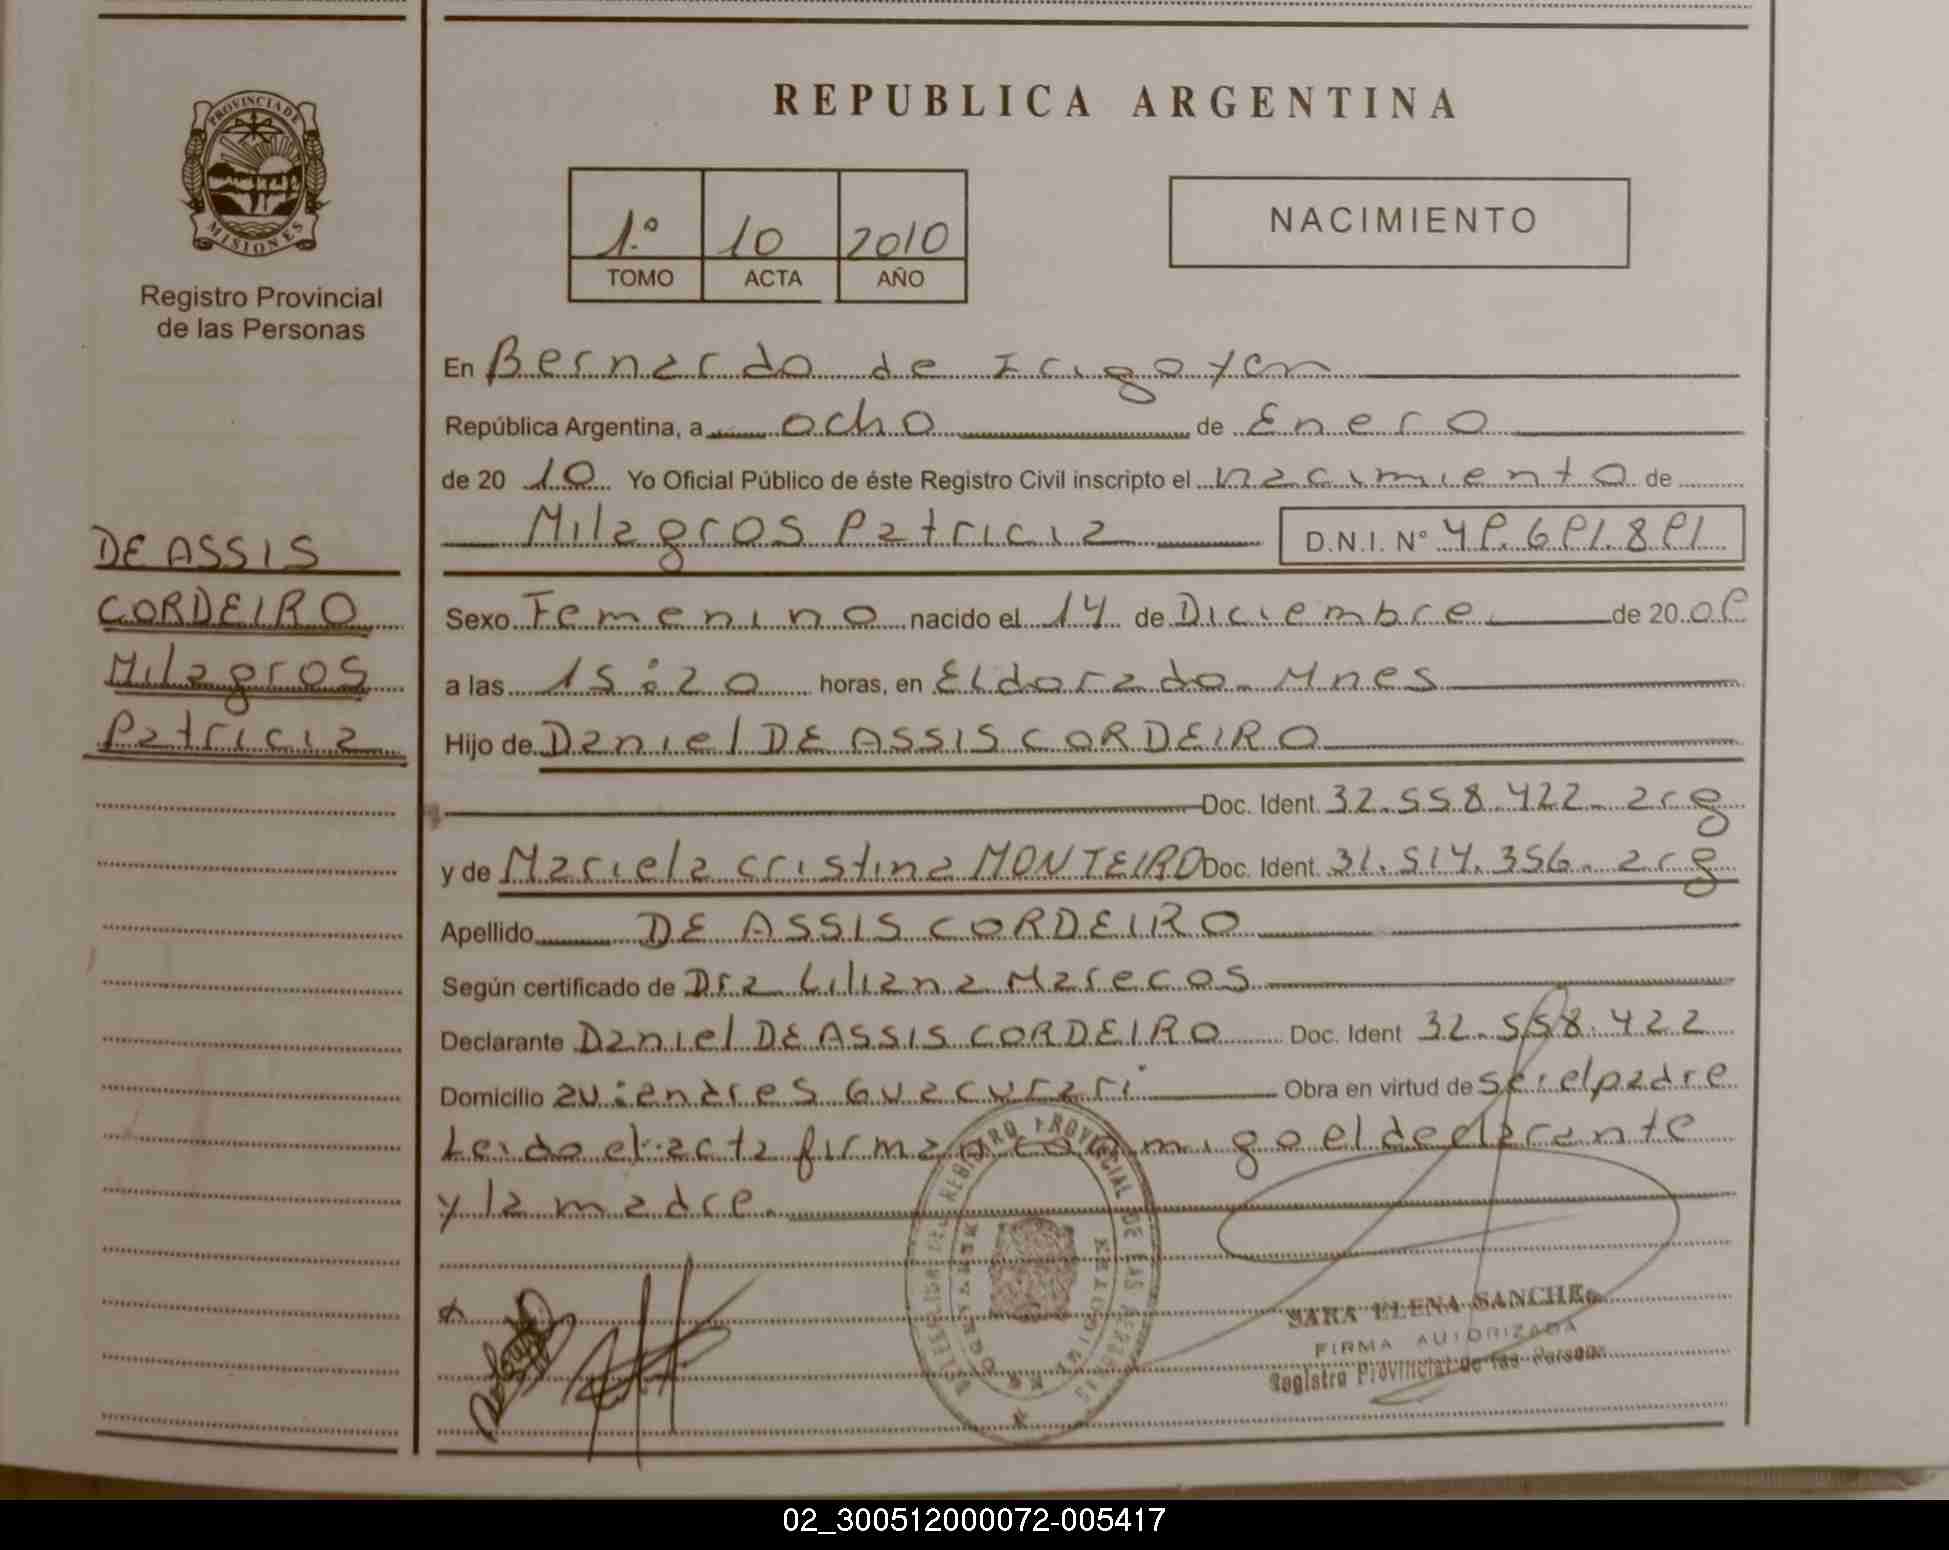 REPUBLICA ARGENTINA
PROVINCIA DE MISIONES
Registro Provincial
de las Personas
1.º 10 2010
TOMO ACTA AÑO
NACIMIENTO
DE ASSIS
CORDEIRO
Milagros
Patricia
En Bernardo de Irigoyen
República Argentina, a ocho de Enero
de 20 10 Yo Oficial Público de éste Registro Civil inscripto el nacimiento de
Milagros Patricia D.N.I. Nº 49.691.891
Sexo Femenino nacido el 14 de Diciembre de 20 09
a las 15:20 horas, en Eldorado. Mnes
Hijo de Daniel DE ASSIS CORDEIRO
Doc. Ident. 32.558.422. arg
y de Mariela Cristina MONTEIRO Doc. Ident. 31.514.356. arg
Apellido DE ASSIS CORDEIRO
Según certificado de Dra Liliana Marecos
Declarante Daniel DE ASSIS CORDEIRO Doc. Ident 32.558.422
Domicilio av: andres Guacurari Obra en virtud de ser el padre
Leido el acta firman conmigo el declarante
y la madre.
REGISTRO PROVINCIAL DE LAS PERSONAS
SARA ELENA SANCHEZ
FIRMA AUTORIZADA
Registro Provincial de las Personas
02_300512000072-005417